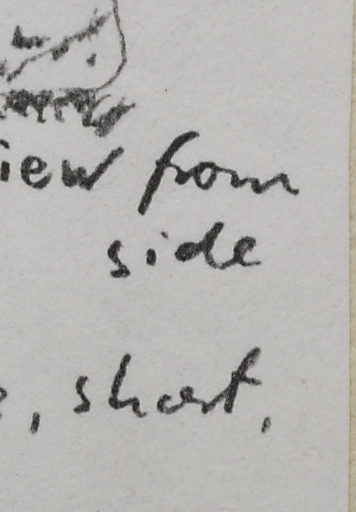 view from
side
, short,